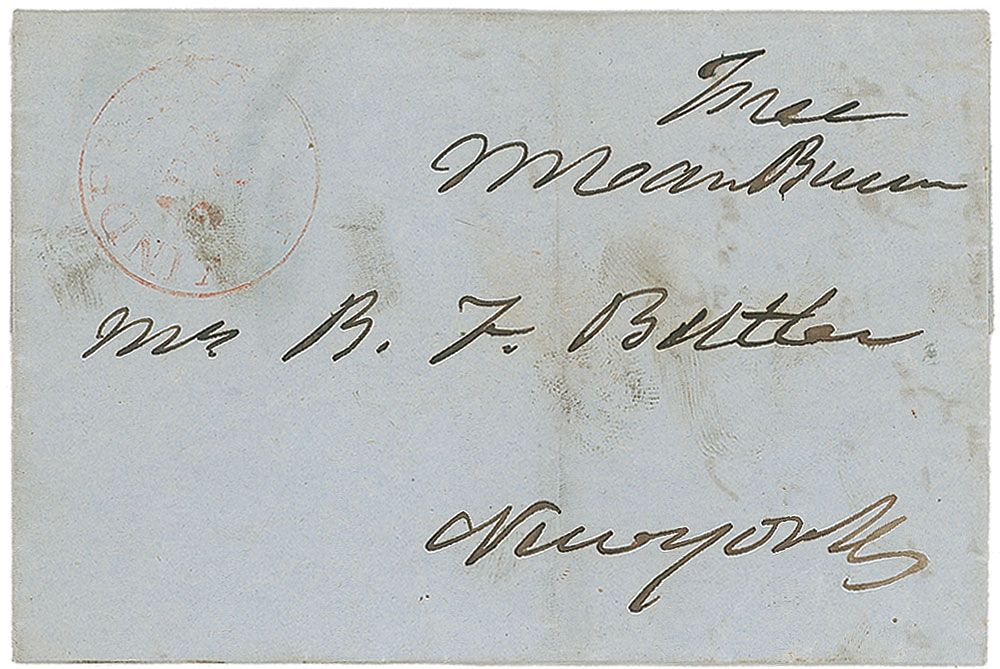 Free
MVanBuren
Mrs B. F. Butler
New york
KIND